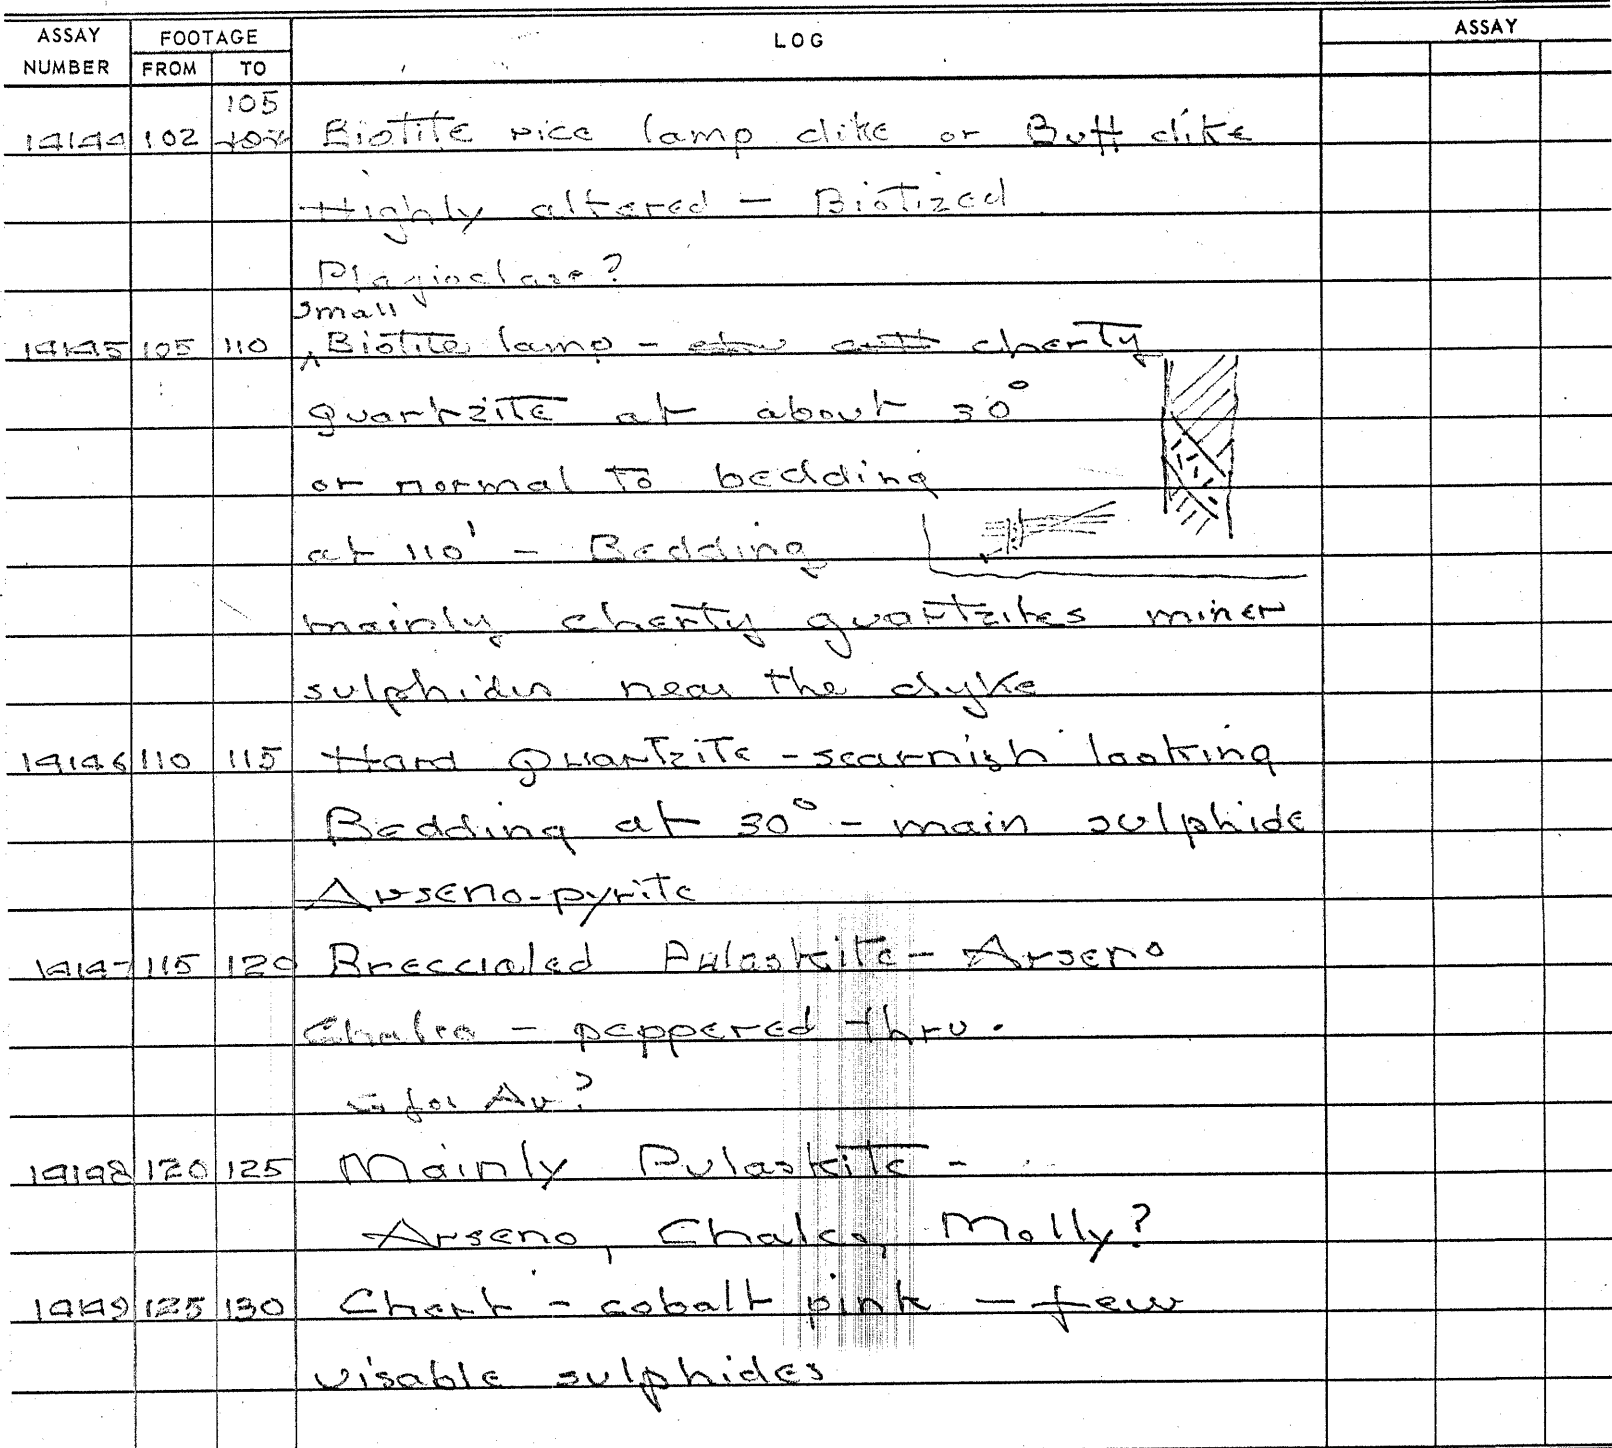 ASSAY NUMBER FOOTAGE FROM TO LOG ASSAY
105
14144 102 Biotite rice lamp dike or Buff dike
Highly altered - Biotized
Plagioclase?
Small
14145 105 110 Biotite lamp - cherty
quartzite at about 30°
or normal to bedding
at 110' - Bedding
mainly cherty quartzites miner
sulphides near the dyke
14146 110 115 Hard Quartzite - scarnish looking
Bedding at 30° - main sulphide
Arseno-pyrite
14147 115 120 Brecciated Pulaskite - Arseno
Chalco - peppered thru.
for Au?
14148 120 125 Mainly Pulaskite -
Arseno, Chalco, Molly?
14149 125 130 Chert - cobalt pink - few
visable sulphides